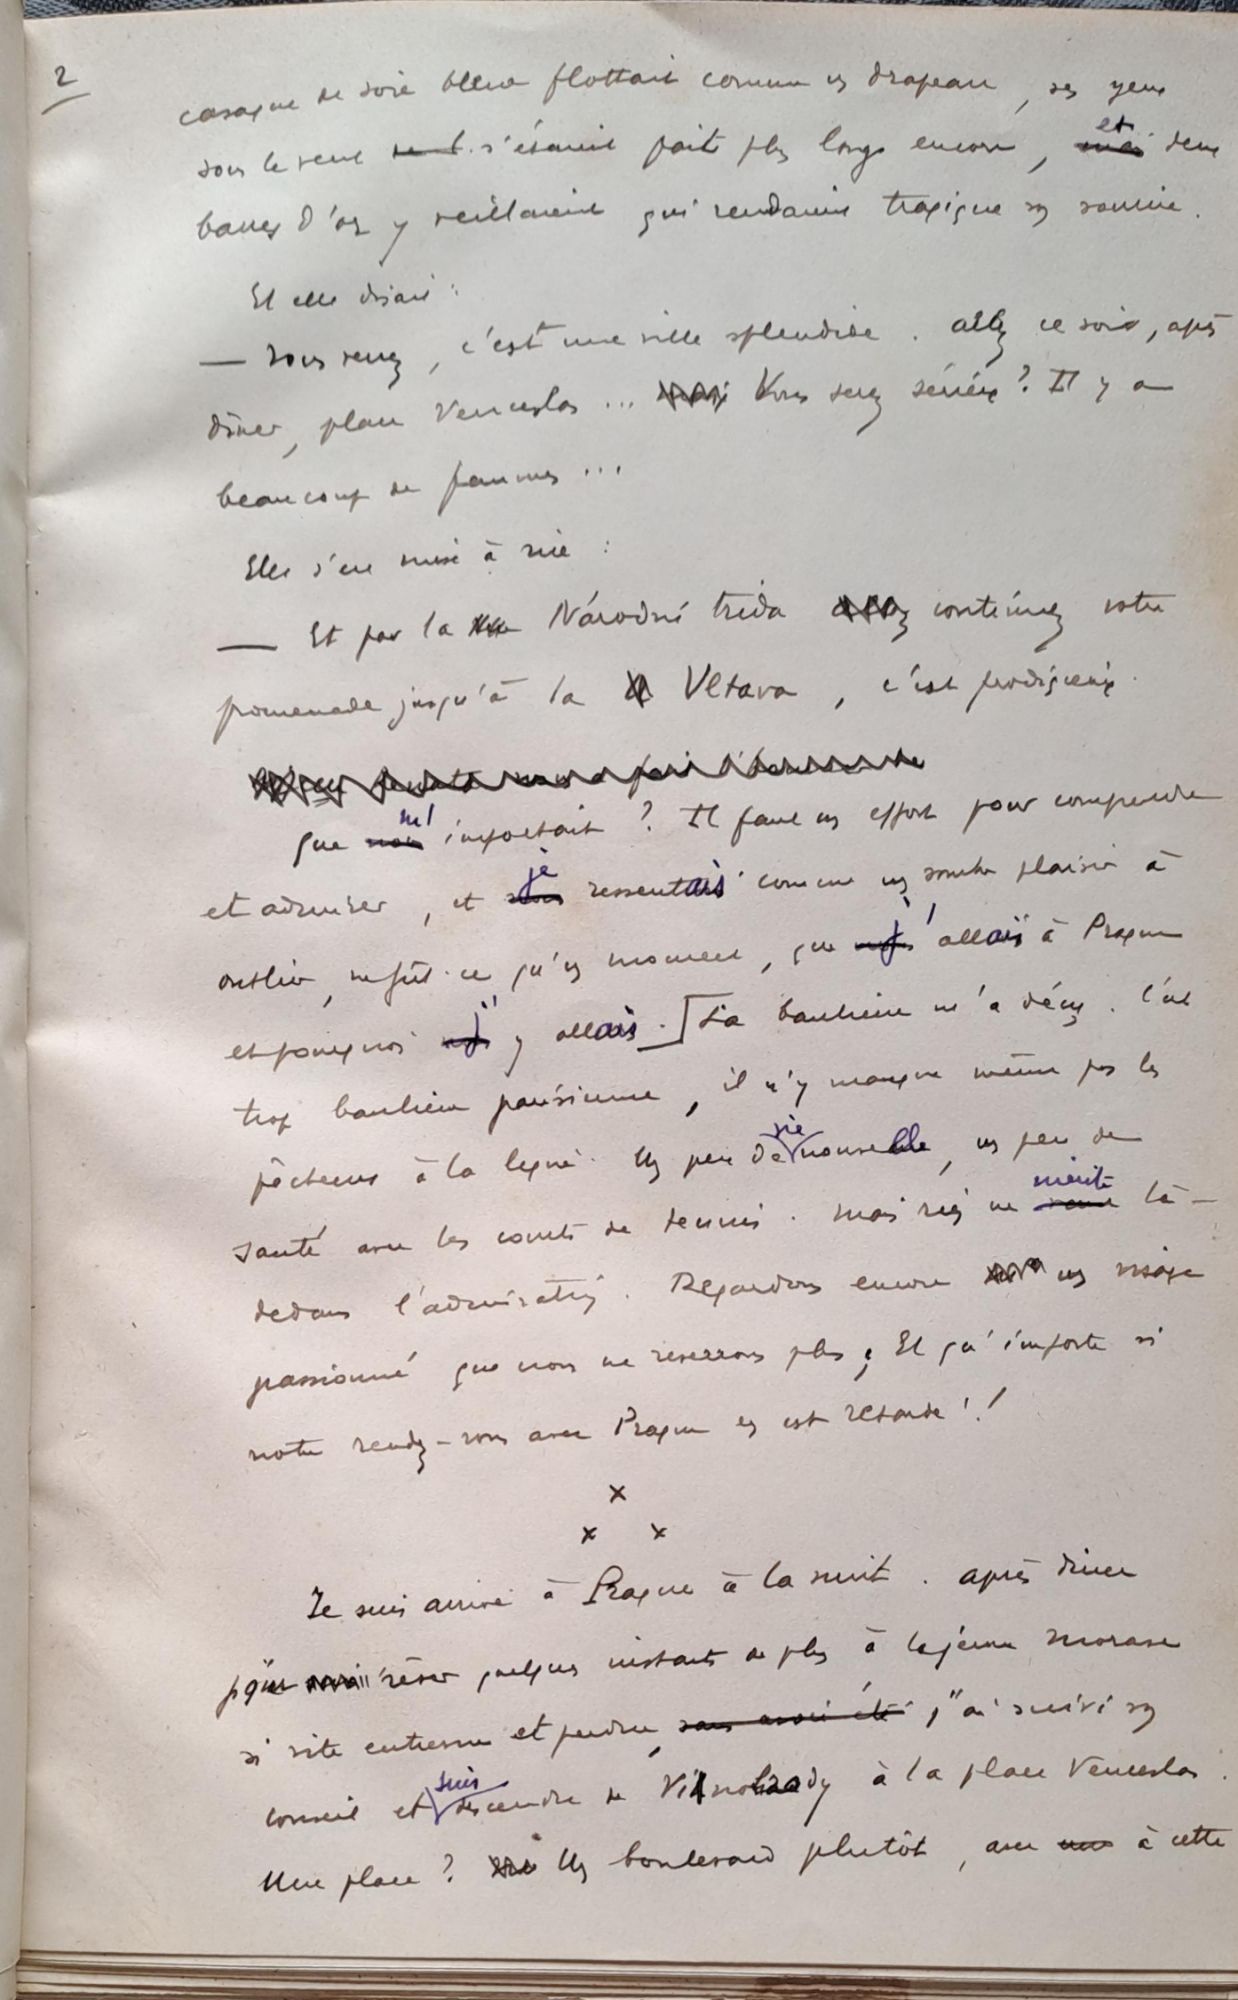 2
casaque de soie bleue flottait comme un drapeau, ses yeux
sous le vent s'étaient faits plus longs encore, et deux
bagues d'or y veillaient qui rendaient tragique son sourire.
Et elle disait :
— Vous verrez, c'est une ville splendide. Allez ce soir, après
dîner, place Venceslas... Vous serez sérieux ? Il y a
beaucoup de femmes...
Elle s'est mise à rire :
— Et par la Národní trida continuez votre
promenade jusqu'à la Vltava, c'est prodigieux.
Que m'importait ? Il faut un effort pour comprendre
et admirer, et je ressentais comme un sombre plaisir à
oublier, ne fût-ce qu'un moment, que j'allais à Prague
et pourquoi j'y allais. La banlieue m'a déçu. C'est
trop banlieue parisienne, il n'y manque même pas les
pêcheurs à la ligne. Un peu de vie nouvelle, un peu de
santé avec les courts de tennis. Mais rien ne mérite là-
dedans l'admiration. Regardons encore un visage
passionné que nous ne reverrons plus. Et qu'importe si
notre rendez-vous avec Prague en est retardé !
x
x x
Je suis arrivé à Prague à la nuit. Après dîner
pour rêver quelques instants de plus à la jeune Morave
si vite entrevue et perdue, j'ai suivi son
conseil et suis descendu de Vinohrady à la place Venceslas.
Une place ? Un boulevard plutôt, avec à cette